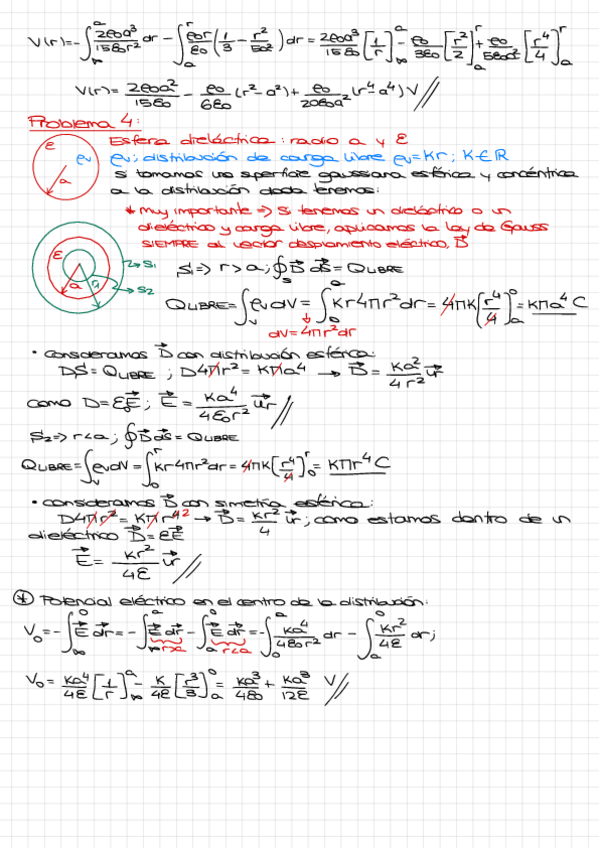 V(r)=-∫_∞^a 2ρ₀a³/15ε₀r² dr - ∫_a^r ρ₀r/ε₀ (1/3 - r²/5a²) dr = 2ρ₀a³/15ε₀ [1/r]_∞^a - ρ₀/3ε₀ [r²/2]_a^r + ρ₀/5ε₀a² [r⁴/4]_a^r
V(r)= 2ρ₀a²/15ε₀ - ρ₀/6ε₀ (r²-a²) + ρ₀/20ε₀a² (r⁴-a⁴) V //
Problema 4:
ε
ρv
a
Esfera dieléctrica: radio a y ε
ρv: distribución de carga libre ρv=Kr; K∈ℝ
Si tomamos una superficie gaussiana esférica y concéntrica
a la distribución dada tenemos:
* muy importante => Si tenemos un dieléctrico o un
dieléctrico y carga libre, aplicamos la ley de Gauss
SIEMPRE al vector desplamiento eléctrico, D⃗
ε
a
r
→S₁
→S₂
S₁=> r>a; ∮_S D⃗ dS⃗ = QLIBRE
QLIBRE= ∫_V ρv dV = ∫_0^a Kr4πr²dr = 4πK[r⁴/4]_a^0 = Kπa⁴ C
dV=4πr²dr
· consideramos D⃗ con distribución esférica:
D·S = QLIBRE ; D4πr² = Kπa⁴ → D⃗ = Ka²/4r² u⃗r
como D=ε₀E⃗; E⃗ = Ka⁴/4ε₀r² u⃗r //
S₂=> r<a; ∮D⃗ dS⃗ = QLIBRE
QLIBRE= ∫_V ρv dV = ∫_0^r Kr4πr²dr = 4πK[r⁴/4]_0^r = Kπr⁴ C
· consideramos D⃗ con simetría esférica:
D4πr² = Kπr⁴ ² → D⃗ = Kr²/4 u⃗r; como estamos dentro de un
dieléctrico D⃗=εE⃗
E⃗ = Kr²/4ε u⃗r //
* Potencial eléctrico en el centro de la distribución:
V₀=-∫_∞^0 E⃗ dr⃗ = -∫_∞^a E⃗ dr⃗ - ∫_a^0 E⃗ dr⃗ = -∫_0^a Ka⁴/4ε₀r² dr - ∫_a^0 Kr²/4ε dr;
r>a r<a
V₀= Ka⁴/4ε [1/r]_∞^a - K/4ε [r³/3]_a^0 = Ka³/4ε₀ + Ka³/12ε V //